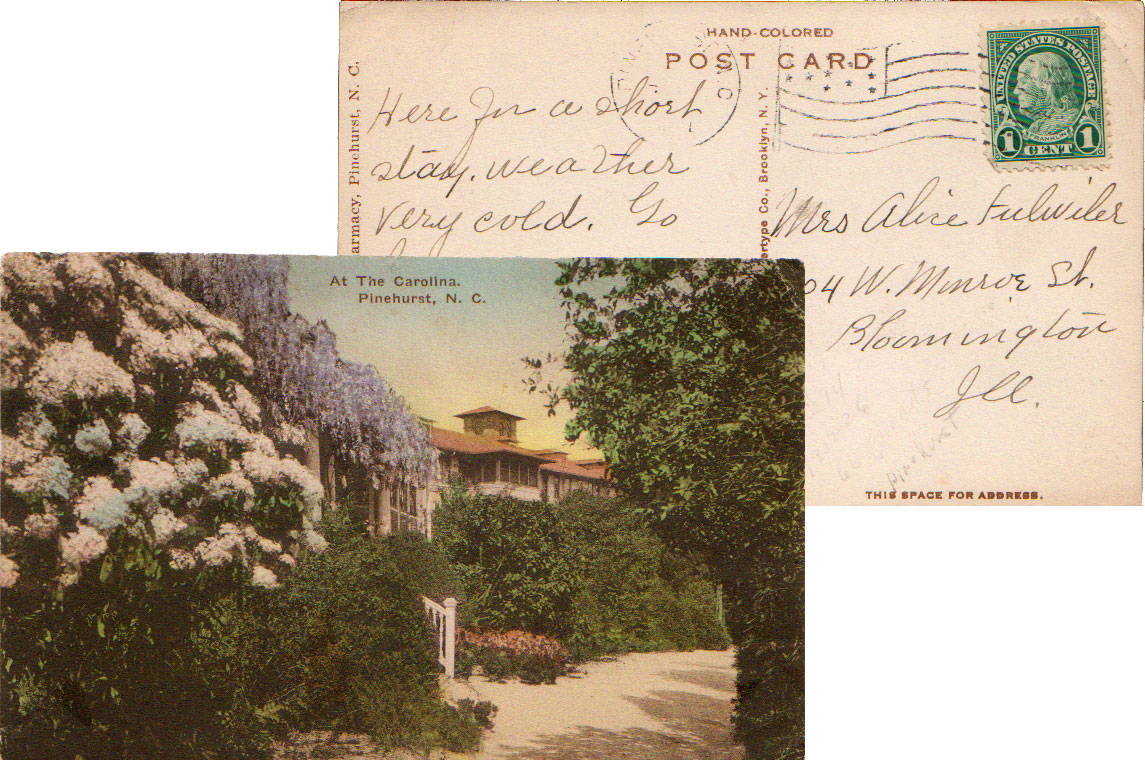 HAND-COLORED
POST CARD
armacy, Pinehurst, N. C.
Here for a short
stay. weather
very cold. Go
ertype Co., Brooklyn, N. Y.
UNITED STATES POSTAGE
FRANKLIN
1 CENT 1
Mrs Alice Fulwiler
04 W. Monroe St.
Bloomington
Ill.
Pinehurst
THIS SPACE FOR ADDRESS.
At The Carolina.
Pinehurst, N. C.